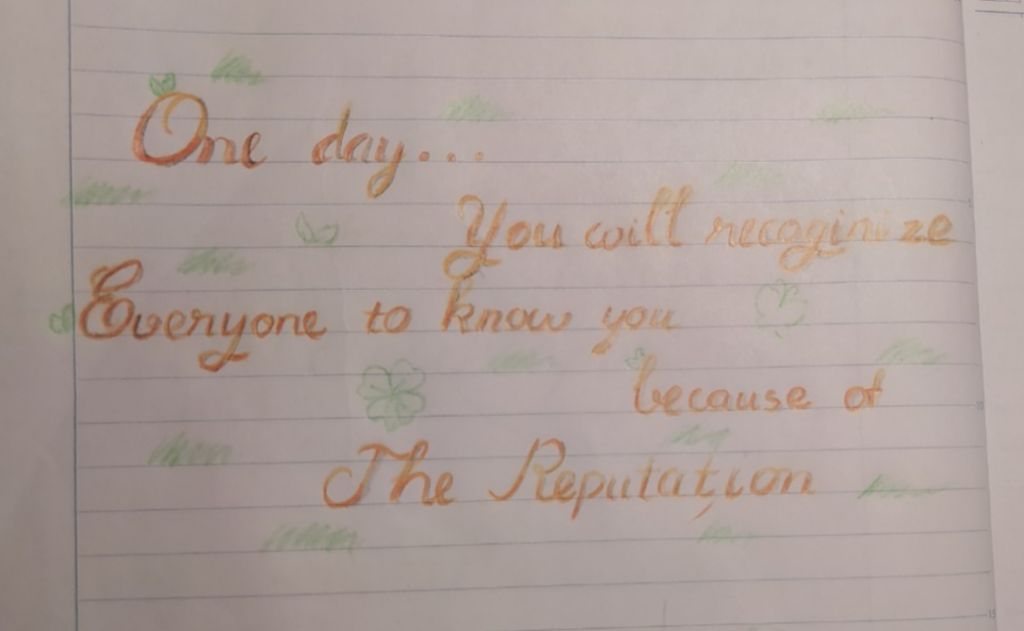 One day...
You will recoginize
Everyone to know you
because of
The Reputation